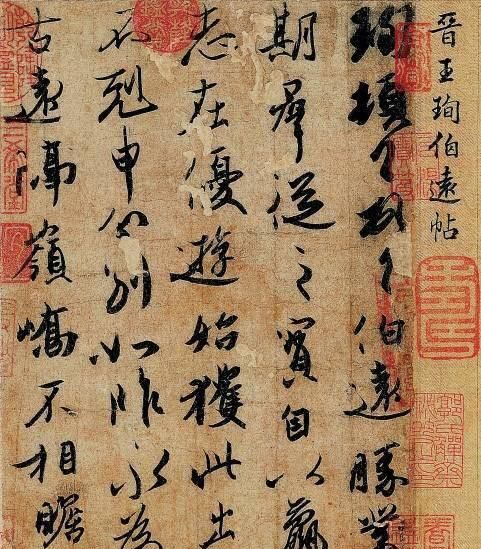 晉王珣伯遠帖
珣頓首頓首伯遠勝業
期羣從之寶自以羸
志在優遊始獲此出
不剋申分別如昨永為
古遠隔嶺嶠不相瞻